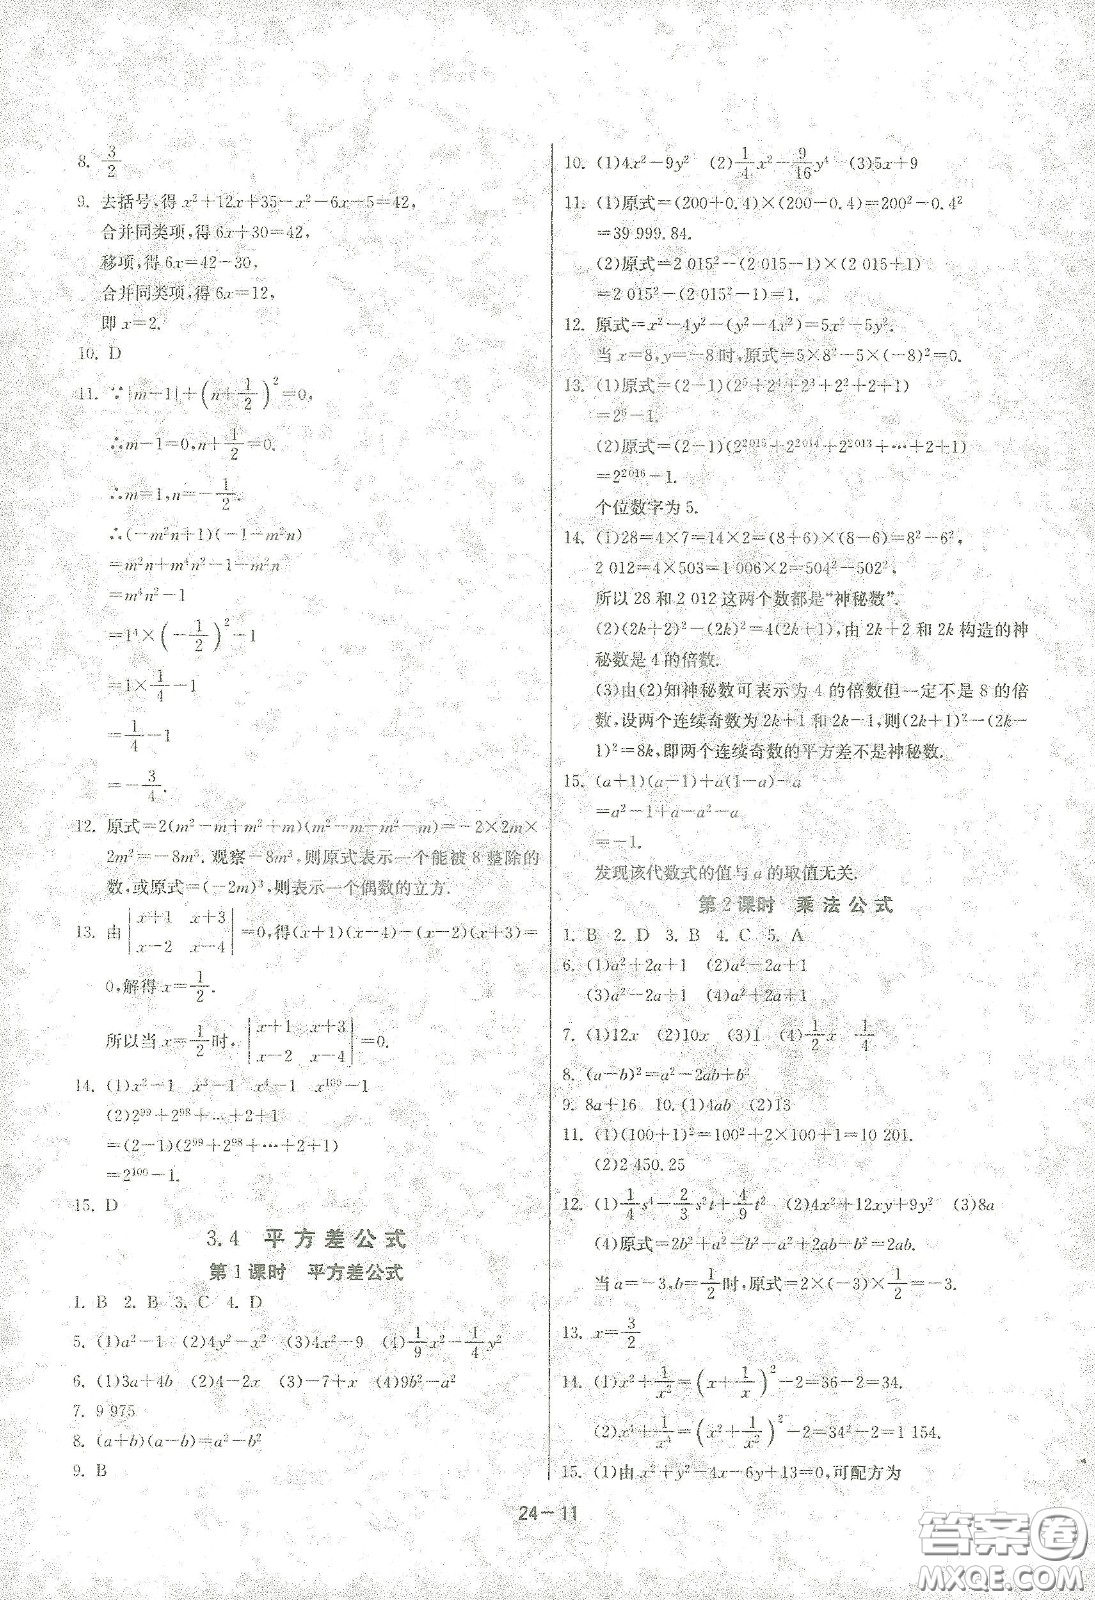 8. 3/2
9. 去括号,得 x²+12x+35-x²-6x-5=42,
合并同类项,得 6x+30=42,
移项,得 6x=42-30,
合并同类项,得 6x=12,
即 x=2.
10. D
11. ∵|m-1|+(n+1/2)²=0,
∴m-1=0,n+1/2=0.
∴m=1,n=-1/2.
∴(-m²n+1)(-1-m²n)
=m²n+m⁴n²-1-m²n
=m⁴n²-1
=1⁴×(-1/2)²-1
=1×1/4-1
=1/4-1
=-3/4.
12. 原式=2(m²-m+m²+m)(m²-m-m²-m)=-2×2m×
2m²=-8m³. 观察-8m³,则原式表示一个能被 8 整除的
数,或原式=(-2m)³,则表示一个偶数的立方.
13. 由|x+1 x+3; x-2 x-4|=0,得(x+1)(x-4)-(x-2)(x+3)=
0,解得 x=1/2.
所以当 x=1/2时,|x+1 x+3; x-2 x-4|=0.
14. (1)x²-1 x³-1 x⁴-1 x¹⁰⁰-1
(2)2⁹⁹+2⁹⁸+…+2+1
=(2-1)(2⁹⁹+2⁹⁸+…+2+1)
=2¹⁰⁰-1.
15. D
3.4 平方差公式
第 1 课时 平方差公式
1. B 2. B 3. C 4. D
5. (1)a²-1 (2)4y²-x² (3)4x²-9 (4)1/9x²-1/4y²
6. (1)3a+4b (2)-4-2x (3)-7+x (4)9b²-a²
7. 9 975
8. (a+b)(a-b)=a²-b²
9. B
10. (1)4x²-9y² (2)1/4x²-9/16y⁴ (3)5x+9
11. (1)原式=(200+0.4)×(200-0.4)=200²-0.4²
=39 999.84.
(2)原式=2 015²-(2 015-1)×(2 015+1)
=2 015²-(2 015²-1)=1.
12. 原式=x²-4y²-(y²-4x²)=5x²-5y².
当 x=8,y=-8 时,原式=5×8²-5×(-8)²=0.
13. (1)原式=(2-1)(2⁵+2⁴+2³+2²+2+1)
(2)原式=(2-1)(2²⁰¹⁵+2²⁰¹⁴+2²⁰¹³+…+2+1)
=2²⁰¹⁶-1.
个位数字为 5.
14. (1)28=4×7=14×2=(8+6)×(8-6)=8²-6²,
2 012=4×503=1 006×2=504²-502²,
所以 28 和 2 012 这两个数都是“神秘数”.
(2)(2k+2)²-(2k)²=4(2k+1),由 2k+2 和 2k 构造的神
秘数是 4 的倍数.
(3)由(2)知神秘数可表示为 4 的倍数但一定不是 8 的倍
数,设两个连续奇数为 2k+1 和 2k-1,则(2k+1)²-(2k-
1)²=8k,即两个连续奇数的平方差不是神秘数.
15. (a+1)(a-1)+a(1-a)-a
=a²-1+a-a²-a
=-1.
发现该代数式的值与 a 的取值无关.
第 2 课时 乘法公式
1. B 2. D 3. B 4. C 5. A
6. (1)a²+2a+1 (2)a²-2a+1
(3)a²-2a+1 (4)a²+2a+1
7. (1)12x (2)10x (3)1 (4)1/2x 1/4
8. (a-b)²=a²-2ab+b²
9. 8a+16 10. (1)4ab (2)13
11. (1)(100+1)²=100²+2×100+1=10 201.
(2)2 450.25
12. (1)1/4s⁴-2/3s²t+4/9t² (2)4x²+12xy+9y² (3)8a
(4)原式=2b²+a²-b²-(a²+b²-2ab)=2b²+a²-b²-a²-b²+2ab=2ab.
当 a=-3,b=1/2时,原式=2×(-3)×1/2=-3.
13. x=3/2
14. (1)x²+1/x²=(x+1/x)²-2=36-2=34.
(2)x⁴+1/x⁴=(x²+1/x²)²-2=34²-2=1 154.
15. (1)由 x²+y²-4x-6y+13=0,可配方为
24-11
答案卷
MXQE.COM